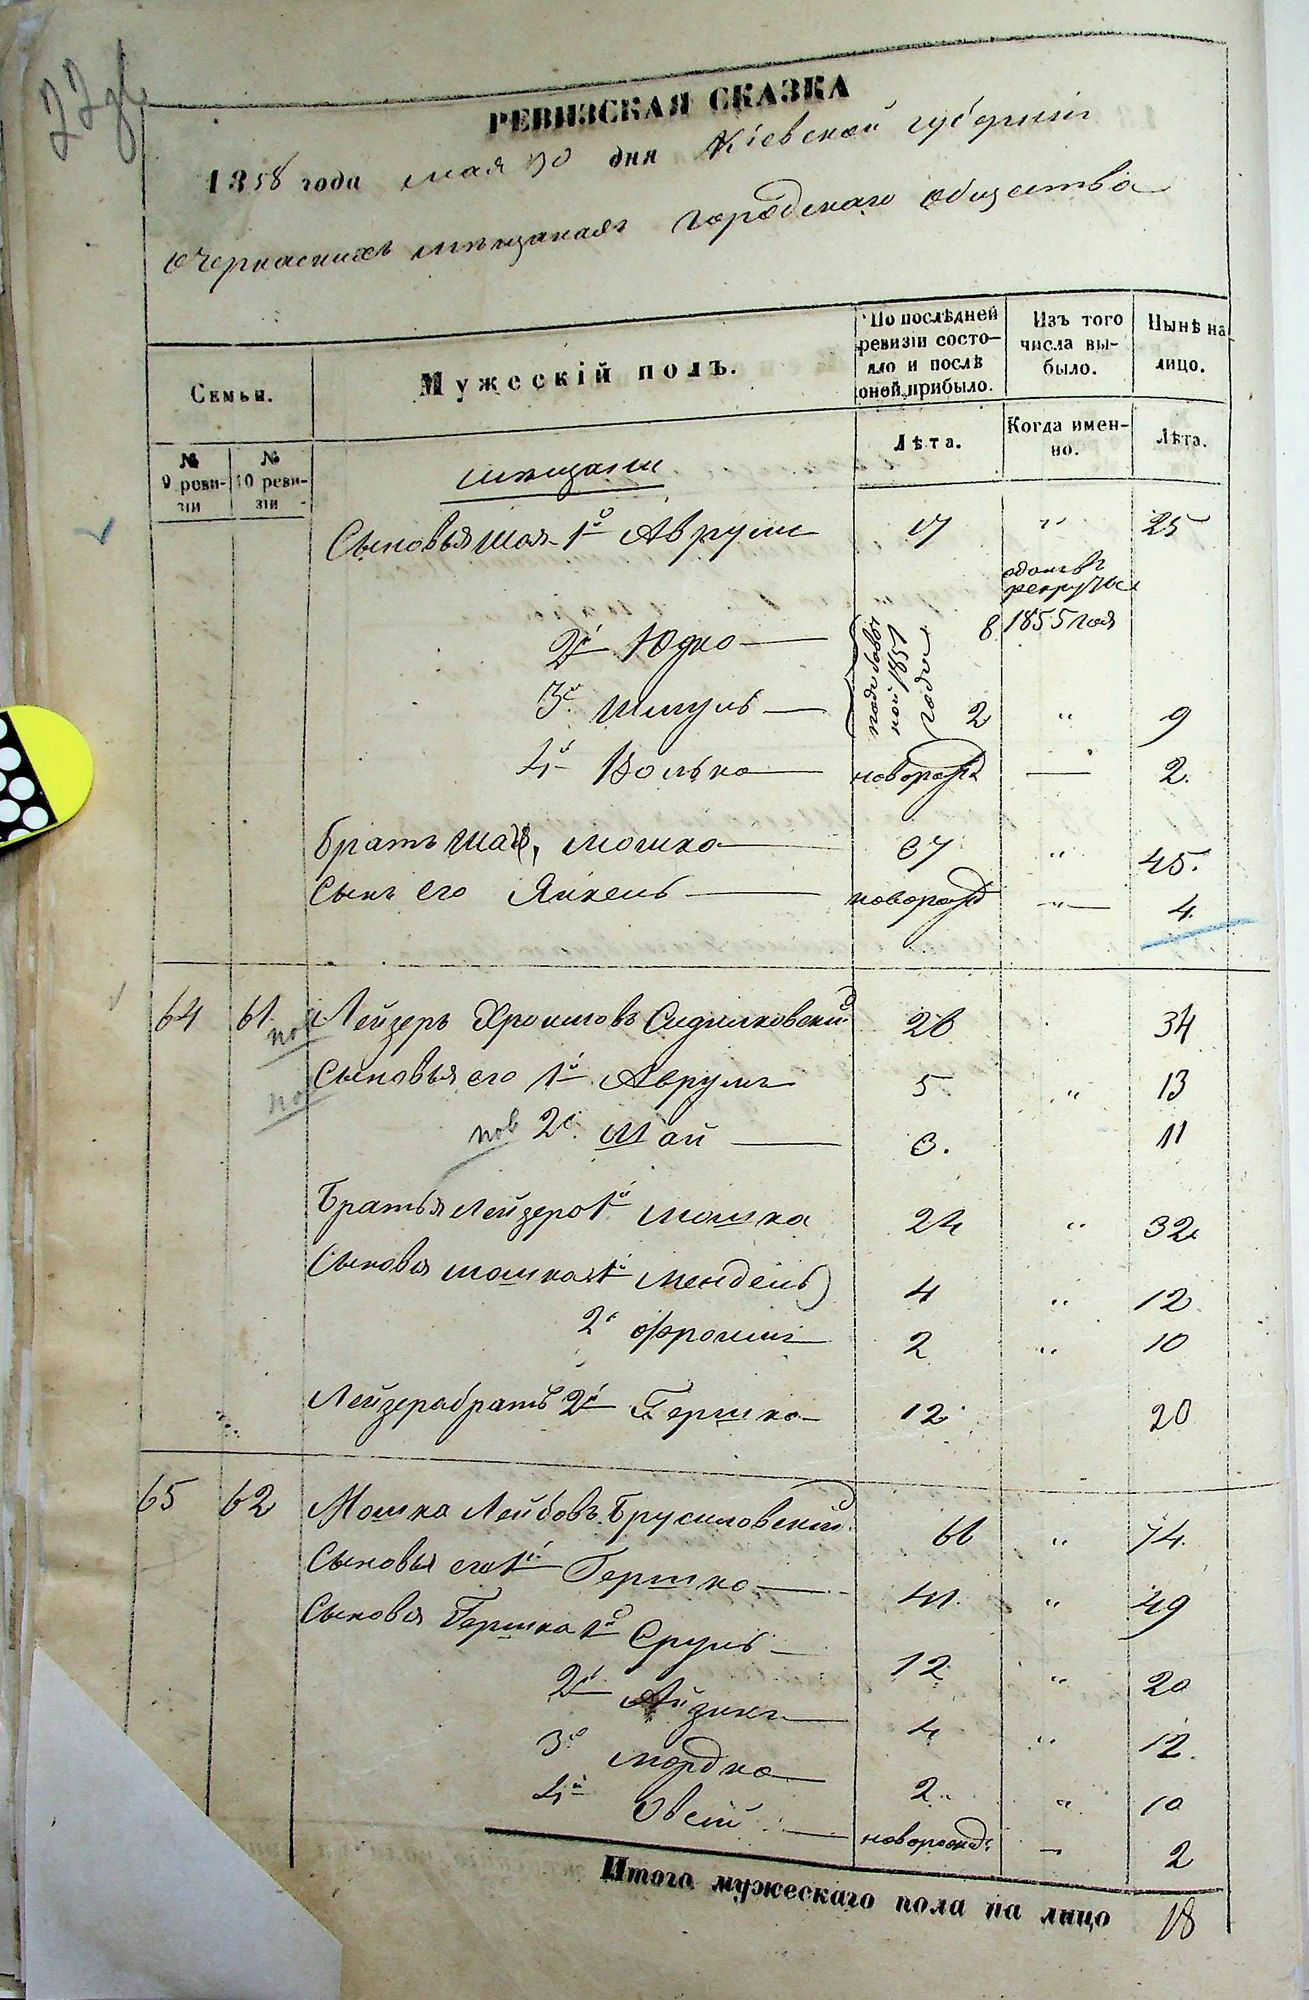 РЕВИЗСКАЯ СКАЗКА
1858 года мая 30 дня Кіевской губерніи
о Черкаскихъ мѣщанахъ городскаго общества
Семьи.
Мужескій полъ.
По послѣдней ревизіи состо-
яло и послѣ
оной прибыло.
Изъ того
числа вы-
было.
Нынѣ на
лицо.
№
9 реви-
зіи
№
10 реви-
зіи
Лѣта.
Когда имен-
но.
Лѣта.
мѣщани
Сыновья Шая 1й Аврумъ 17 " 25
отданъ въ
рекруты
2й Юдко 8 1855 года
3й Шмуль 2 " 9
4й Волько новорожд 2.
Братъ Шаи, Мошко 37 " 45.
Сынъ его Янкель новорожд " 4.
64 61. Лейзеръ Фроимовъ Сидилковскій 26 34
Сыновья его 1й Аврумъ 5 " 13
пов 2й Май 3. 11
Братья Лейзера 1й Мошка 24 " 32
Сыновья Мошка 1й Мендель 4 " 12
2й Фроимъ 2 " 10
Лейзера братъ 2й Гершко 12 20
65 62 Мошка Лейбовъ Брусиловскій 66 " 74.
Сыновья его 1й Гершко 41. " 49
Сыновья Гершка 1й Сруль 12 " 20
2й Айзикъ 4 " 12.
3й Мордко 2 " 10
4й Овсій новорожд. 2
Итого мужескаго пола на лицо 18